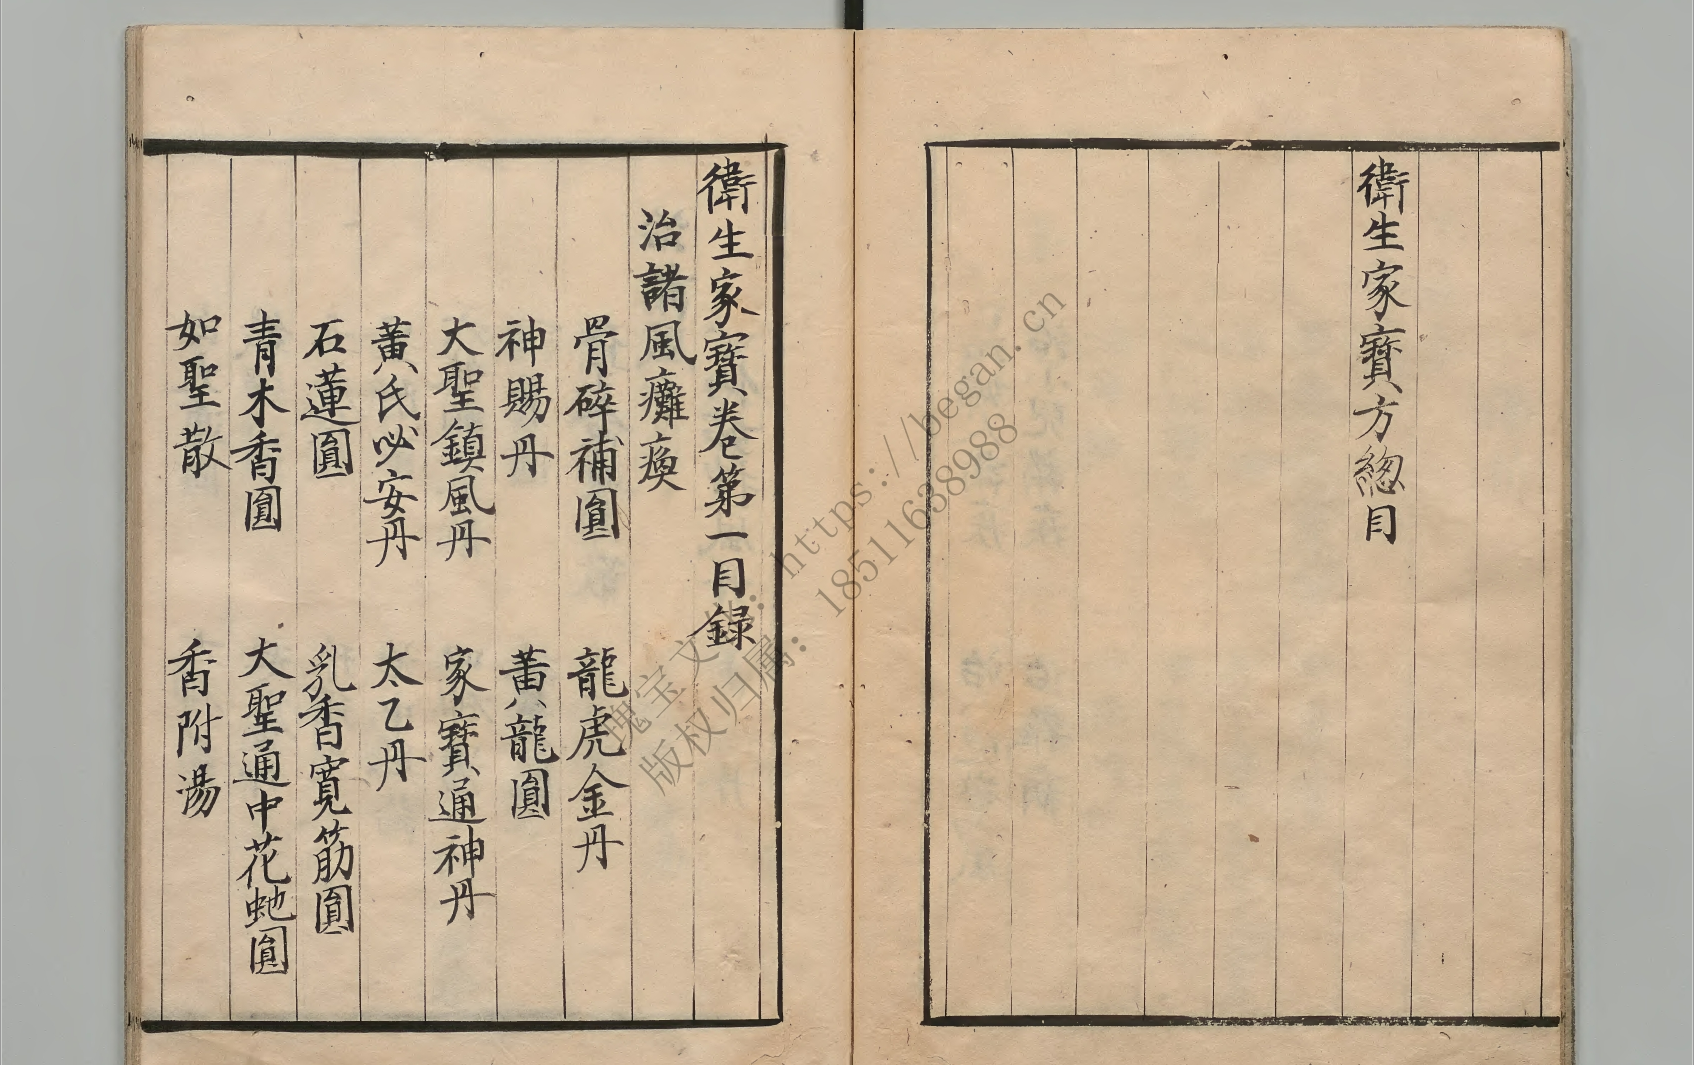 衛生家寶方緫目
衛生家寶卷第一目録
治諸風癱瘓
骨碎補圓 龍虎金丹
神賜丹 黃龍圓
大聖鎮風丹 家寶通神丹
黃氏必安丹 太乙丹
石蓮圓 乳香寬筋圓
青木香圓 大聖通中花虵圓
如聖散 香附湯
https://began.cn
18511638988
瑰宝文
版权归属: